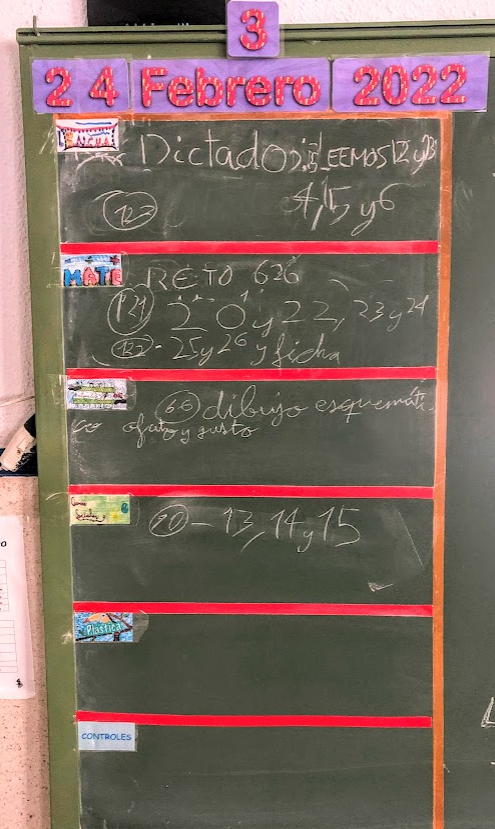 3
24 Febrero 2022
LENGUA
Dictado LEEMOS 12 y 13
4, 15 y 6
123
MATE
RETO 626
121 20 y 22, 23 y 24
122 - 25 y 26 y ficha
66 dibujo esquemáti-
co olfato y gusto
Sociales
90 - 13, 14 y 15
Plástica
CONTROLES